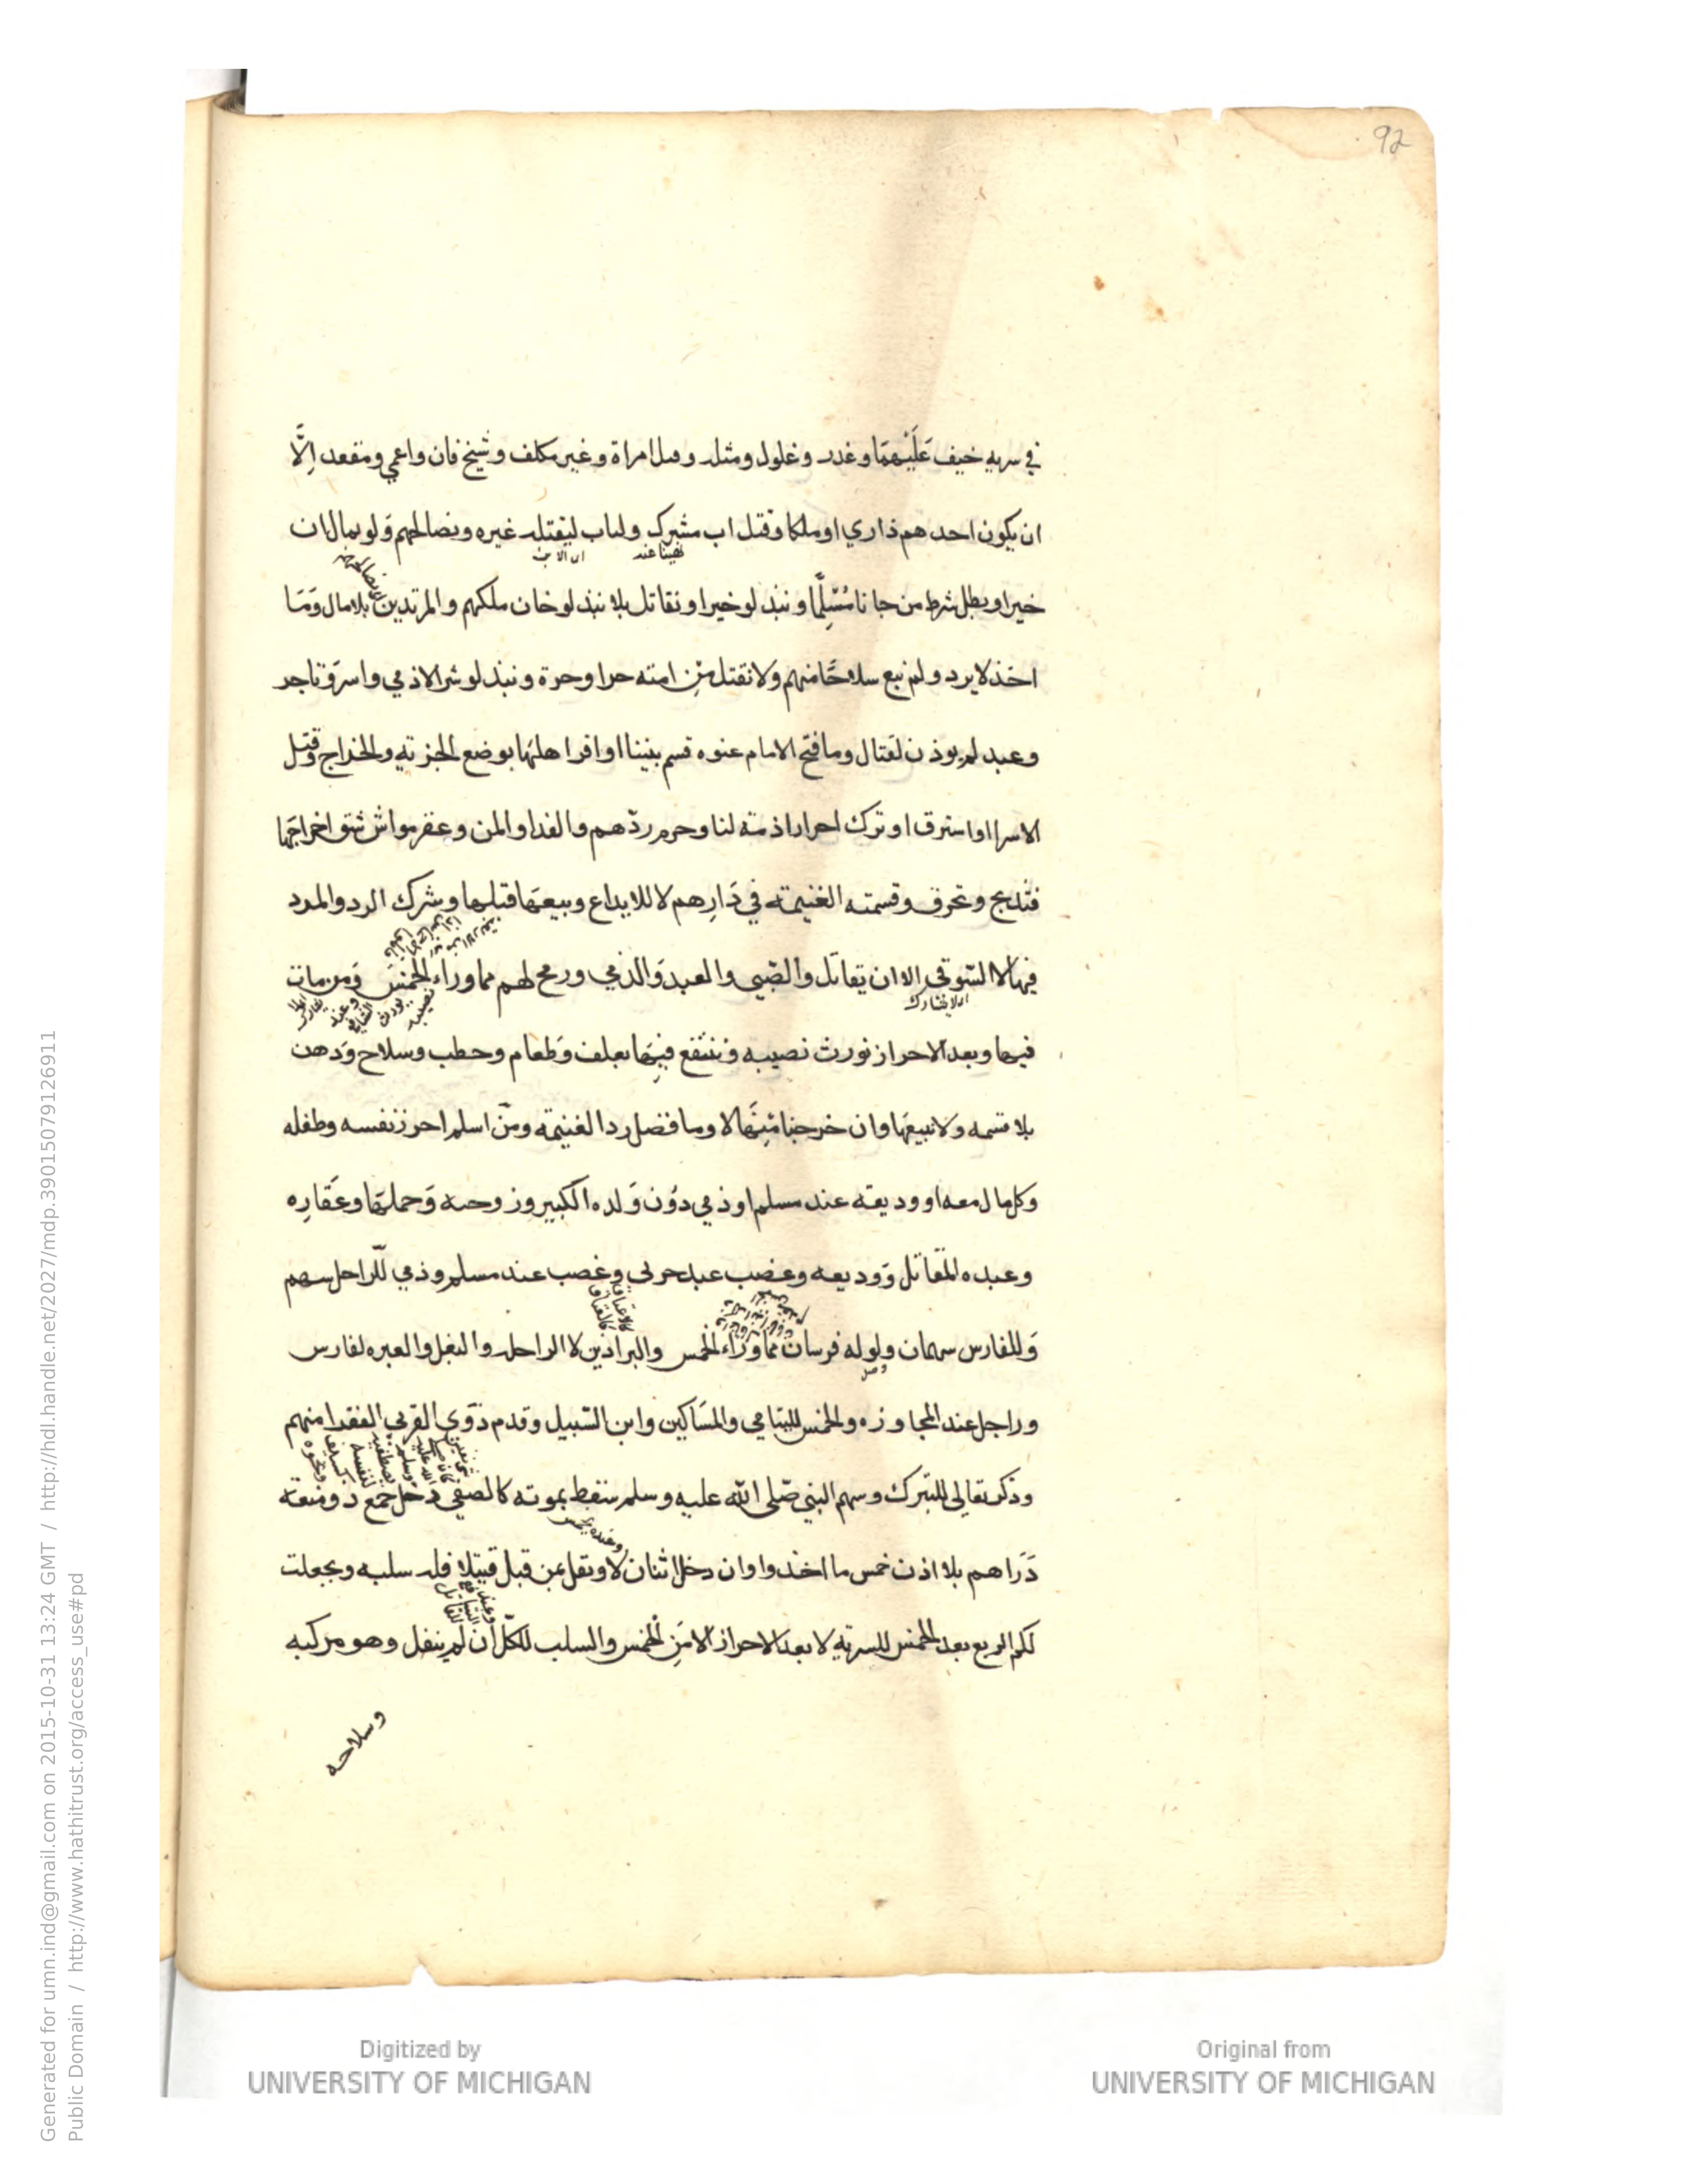 92
في سريه خيف عَلَيْهمَا وغدر وغلول ومثله وقتل امراة وغير مكلف وشيخ فان واعمي ومقعد اِلَّا
ان يكون احدهم ذا راي او ملكا وقتل اب مشرك وليأب ليقتله غيره ونصالحهم وَلو بمال ان
خيرا ويطل شرط من جا نا مُسْلِمًا ونبذ لو خيرا ونقاتل بلا نبذ لو خان ملكهم والمرتدين بلا مال وَمَا
اخذ لا يرد ولم نبع سلاحًا منهم ولا نقتل مَن امنه حر او حرة ونبذ لو شر الا ذمي واسر وتاجر
وعبد لم يوذن لقتال وما فتح الامام عنوه قسم بيننا او اقر اهلهَا بوضع الجزيه والخراج وقتل
الاسرا او استرق او ترك احرارا ذمة لنا وحرم ردّهم والفدا والمن وعقر مواش شق اخراجهَا
فتذبح وتحرق وقسمة الغنيمة في دَارِهم لا للايداع وبيعهَا قبلها وشرك الرد والمدد
فيها لا السّوقي الا ان يقاتل والصّبي والعبد وَالذمي ورمح لهم مما وراء الخمس وَمن مات
اي لا يشارك
فيها وبعد الاحراز نورث نصيبه وننتفع فيهَا بعلف وَطعام وحطب وسلاح وَدهن
بلا قسمه ولا نبيعهَا وان خرجنا مِنهَا لا وما فضل رد الغنيمة ومَن اسلم احرز نفسه وطفله
وكل مال معه او وديعه عند مسلم او ذمي دوُن وَلده الكبير وزوجته وَحملهَا وعَقارِه
وعبده المقاتل وَوديعه وغصب عبد حربي وغصب عند مسلم وذمي للراجل سهم
وَللفارس سهمان ولو له فرسان مما وراء الخمس والبراذين لا الراحله والبغل والعبره لفارس
وراجل عند المجاوزه والخمس لليتامي والمسَاكين وابن السّبيل وقدم ذوَي القربي الفقرا منهم
وذكر تعالي للتبرك وسهم النبي صَلى الله عليه وسلم سقط بموته كالصفي دخل جمع ذو منعة
دَرَاهم بلا اذن خمس ما اخذوا وان دخل اثنان لا ونفل بمن قبل قتيلا فله سلبه وبجعلت
لكم الربع بعد الخمس للسريه لا بعد الاحراز الا مَن الخمس والسلب للكلّ ان لم ينفل وهو مركبه
وسلاحه
Generated for umn.ind@gmail.com on 2015-10-31 13:24 GMT / http://hdl.handle.net/2027/mdp.39015079126911
Public Domain / http://www.hathitrust.org/access_use#pd
Digitized by
UNIVERSITY OF MICHIGAN
Original from
UNIVERSITY OF MICHIGAN